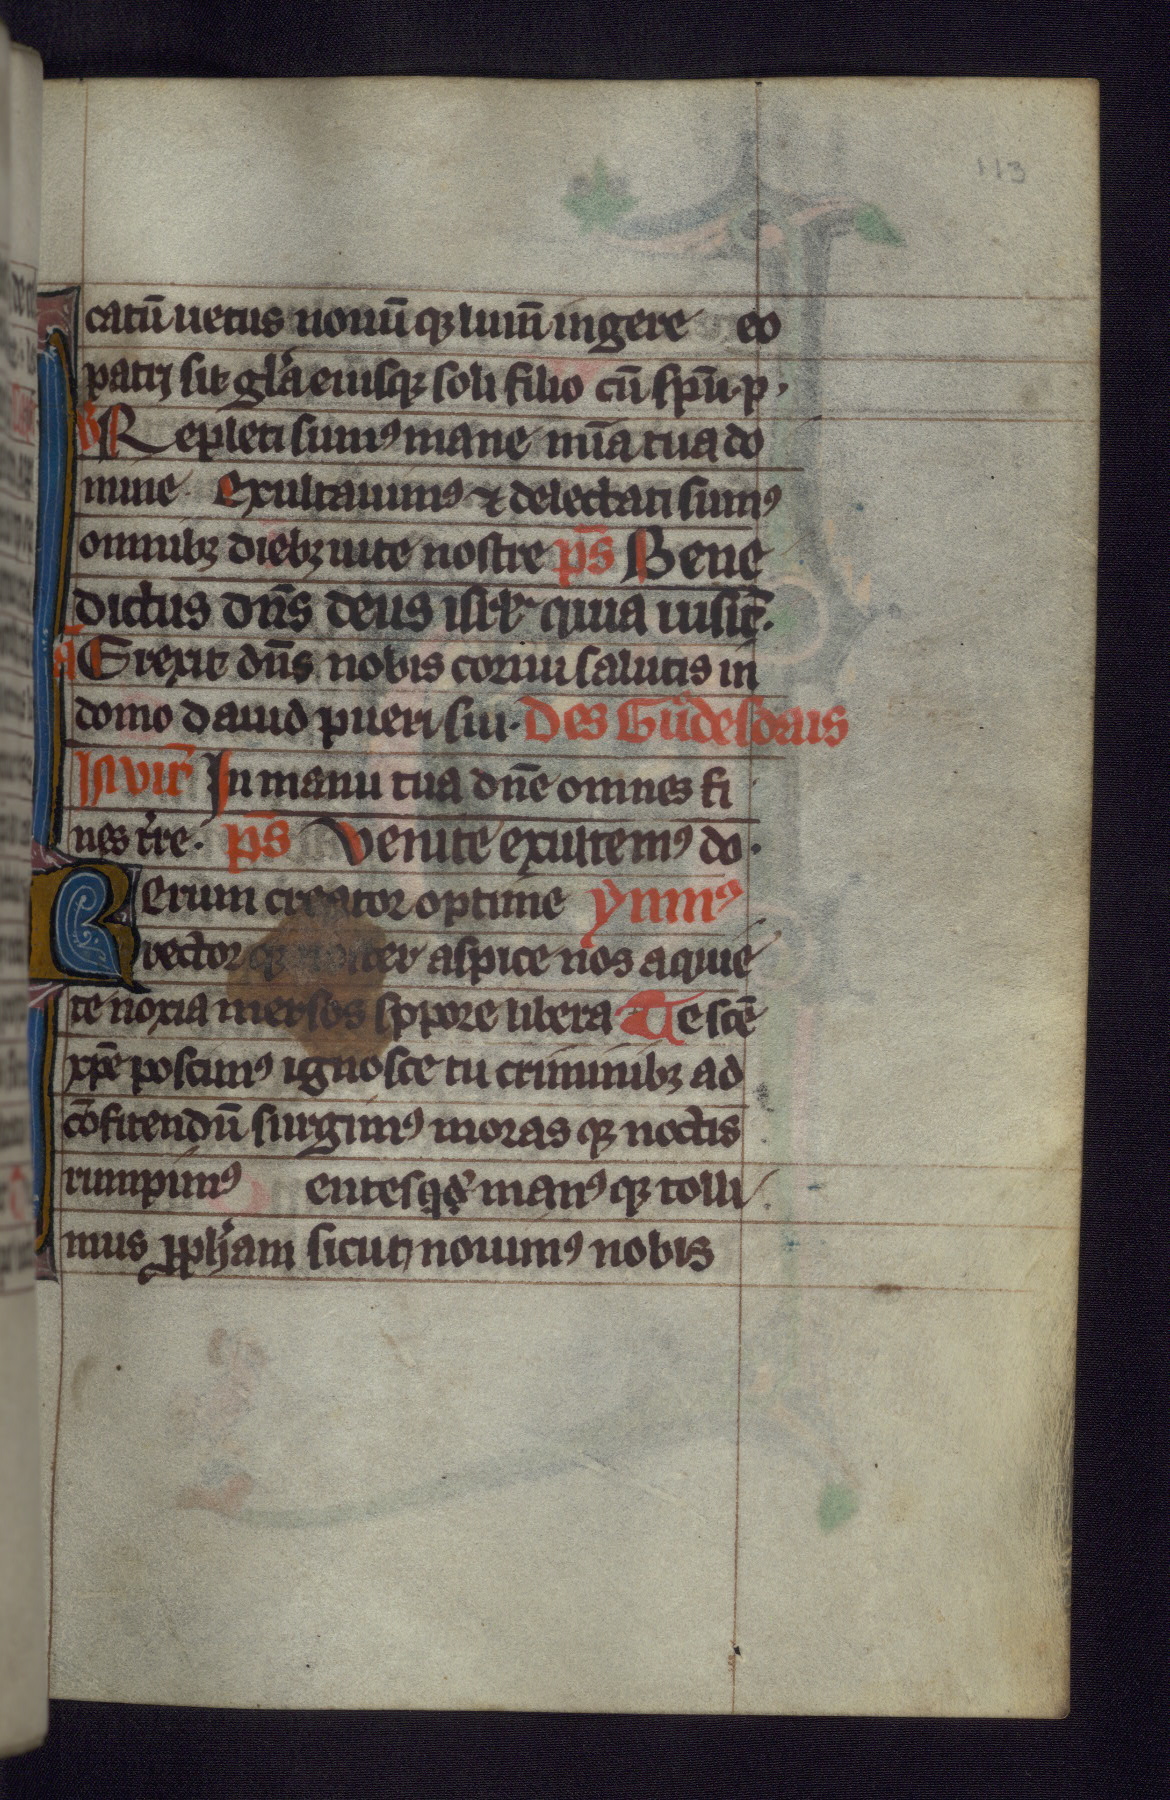 113
catū uetus nouū qȝ lumē ingere eo
patrj sit gl'a eiusqȝ soli filio cū sp̄u p.
V Repleti sumꝰ mane mīa tua do
mine Exultauimꝰ ⁊ delectati sumꝰ
omnibȝ diebȝ uite nostre p̄s Bene
dictus dn̄s deus isrl' quia uisit̄.
a Erexit dn̄s nobis cornu salutis in
domo dauid pueri sui. Des Gūdesdrais
Jnvit̄ Jn manu tua dn̄e omnes fi
nes t're. p̄s Venite exultemꝰ do.
Rerum creator optime ymnꝰ
rector qȝ noster aspice nos a quie
te noxia mersos sppore libera Te sc̄e
xp̄e poscimꝰ ignosce tu criminibȝ ad
cōfitendū surgimꝰ moras qȝ noctis
rumpimꝰ entesqȝ manꝰ qȝ tolli
mus ꝓph'am sicutj nouimꝰ nobis